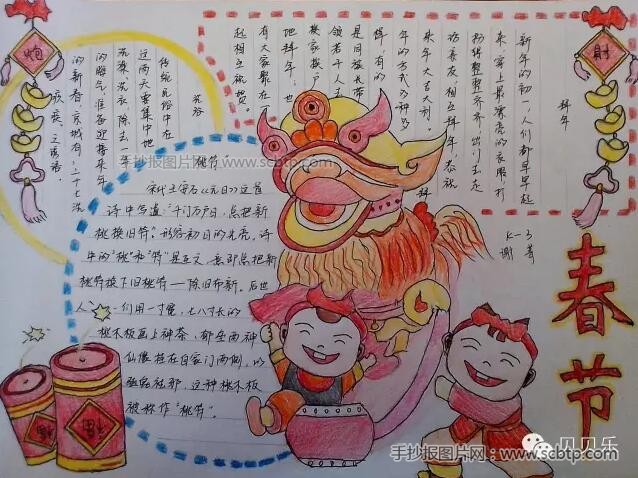 拜年
新年的初一,人们都早早起
来,穿上最漂亮的衣服,打
扮得整整齐齐,出门去走
访亲友,相互拜年,恭祝
来年大吉大利。拜
年的方式多种多
样,有的
是同族长带
领若干人去
挨家挨户
地拜年;也
有大家聚在
起相互祝贺。
传统民俗中在
这两天要集中地
洗澡、洗衣,除去一年
的晦气,准备迎接来年
的新春,京城有"二十七洗
疚疾,
"桃符"
宋代王安石《元日》这首
诗中写道:"千门万户
日,总把新
桃换旧符。"形容初日的光亮,诗
中的"桃"和"符"是互文,意即总把新
桃符换下旧桃符——除旧布新。后世
人们用一寸宽,七八寸长的
桃木板画上神荼、郁垒两神
仙像挂在自家门两侧,以
驱鬼祛邪,这种桃木板
被称作"桃符"。
K-3
谢菁
春节
财
炮
手抄报图片网 www.scbtp.com
手抄报图片网:www.scbtp.com
贝贝乐